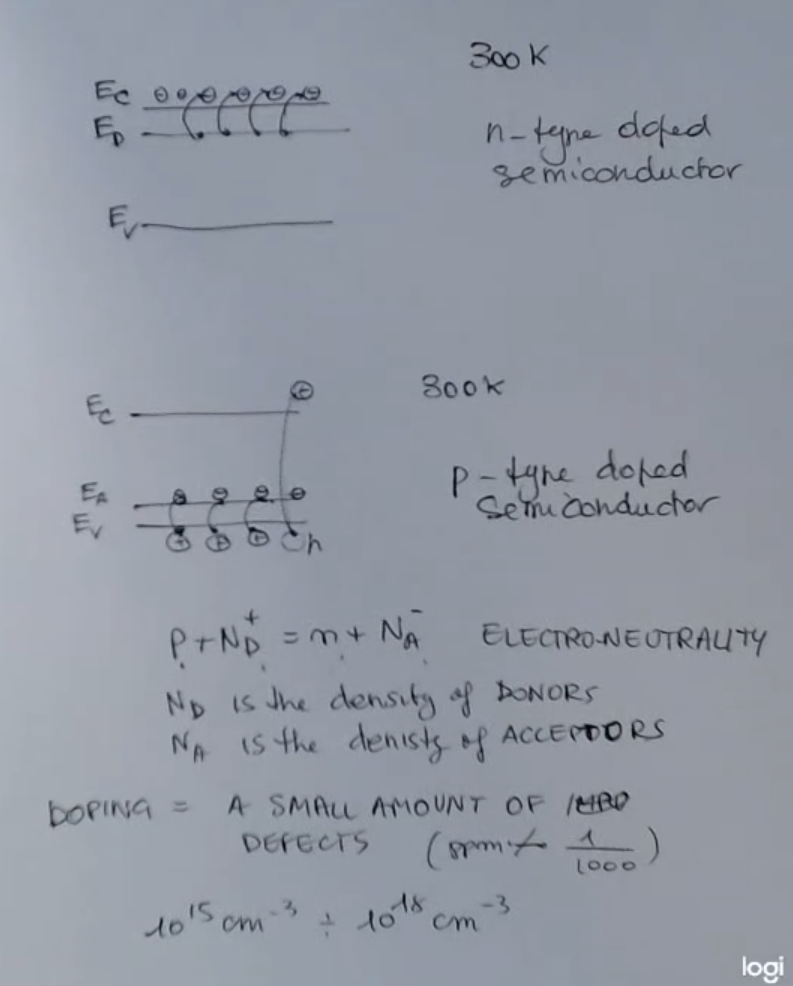 300K
Ec
ED
n-type doped
semiconductor
Ev
300K
Ec
EA
p-type doped
Semiconductor
Ev
h
p + ND⁺ = n + NA⁻ ELECTRONEUTRALITY
ND is the density of DONORS
NA is the denisty of ACCEPTORS
DOPING = A SMALL AMOUNT OF
DEFECTS (ppm ÷ 1/1000)
10¹⁵ cm⁻³ ÷ 10¹⁸ cm⁻³
logi